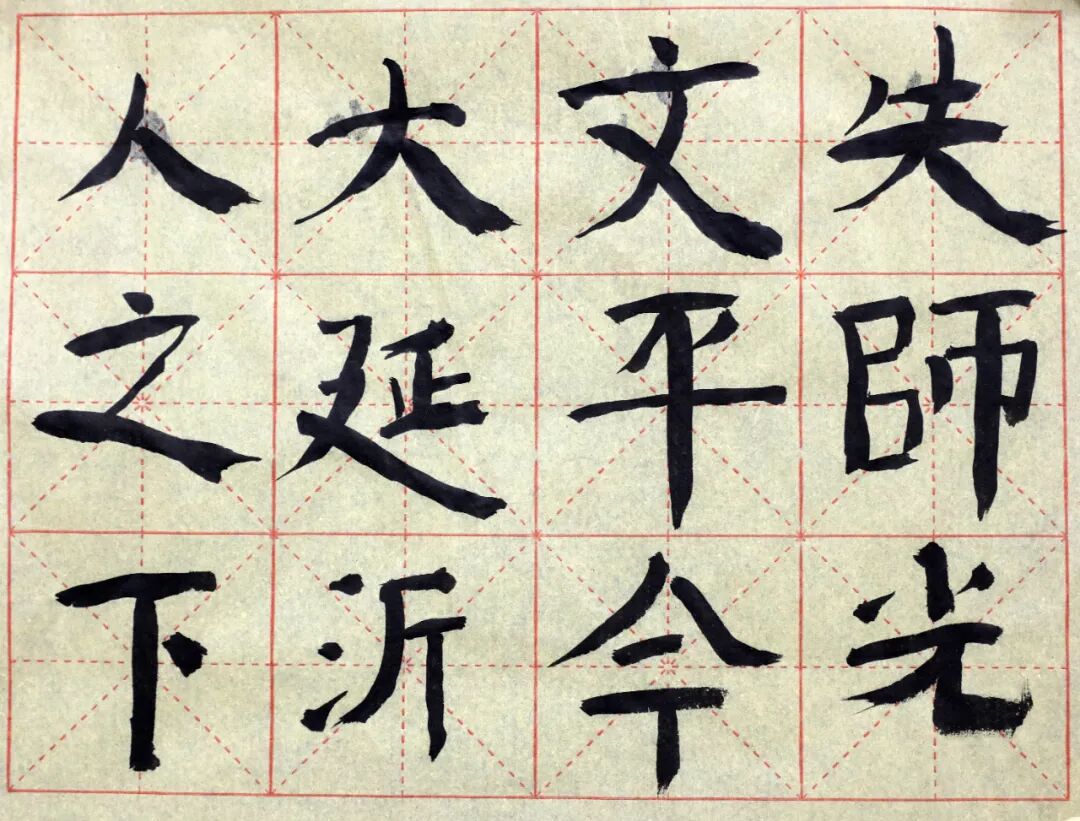 人大文失
之延平師
下沂令光